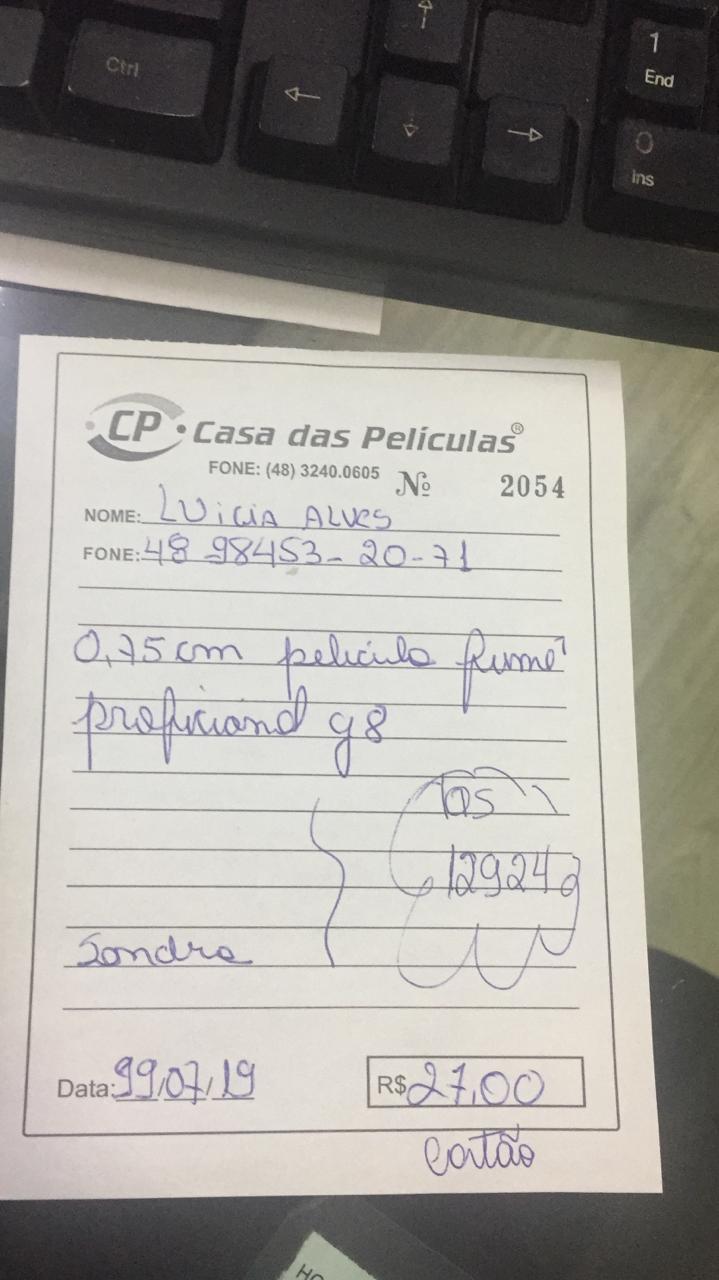 Ctrl
1
End
0
Ins
CP Casa das Películas®
FONE: (48) 3240.0605 Nº 2054
NOME: LUiCiA ALVES
FONE: 48 98453-20-71
0,75 cm película fumê
proficional g8
os
12924
Sandra
Data: 99/07/19 R$ 27,00
cartão